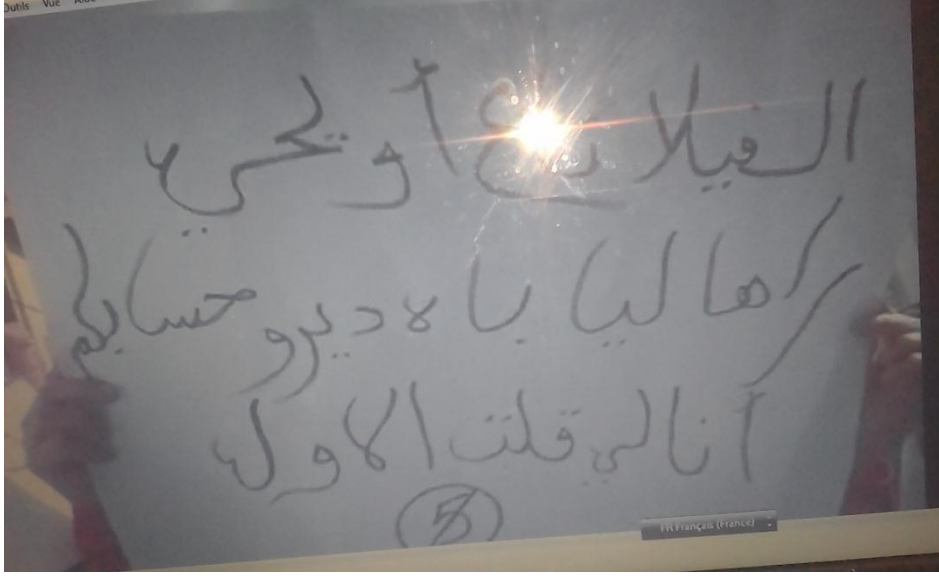 Outils Vue Aide
الفيلا أويحي
راها ليا يا لا ديرو حسابكم
أنا لي قلت الاول
5
FR Français (France)